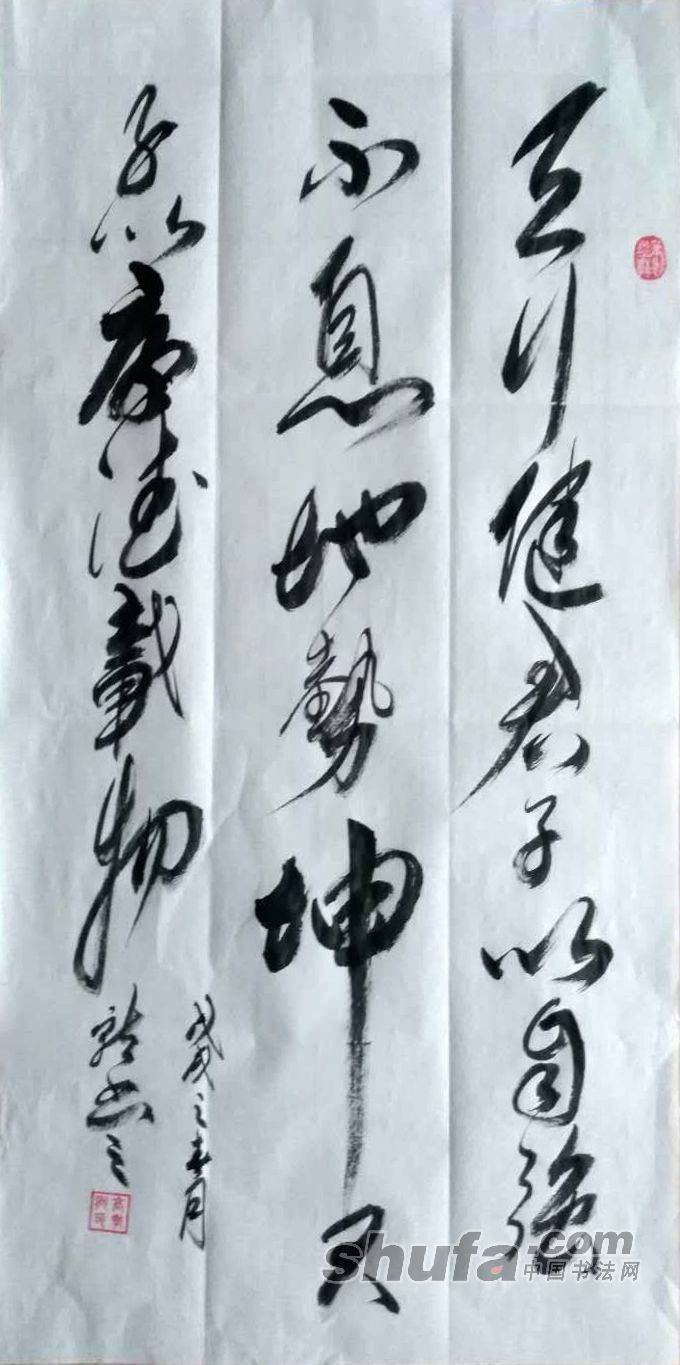 天行健君子以自強
不息地勢坤君
子以厚德載物
戊戌之春月
shufa.com
中国书法网